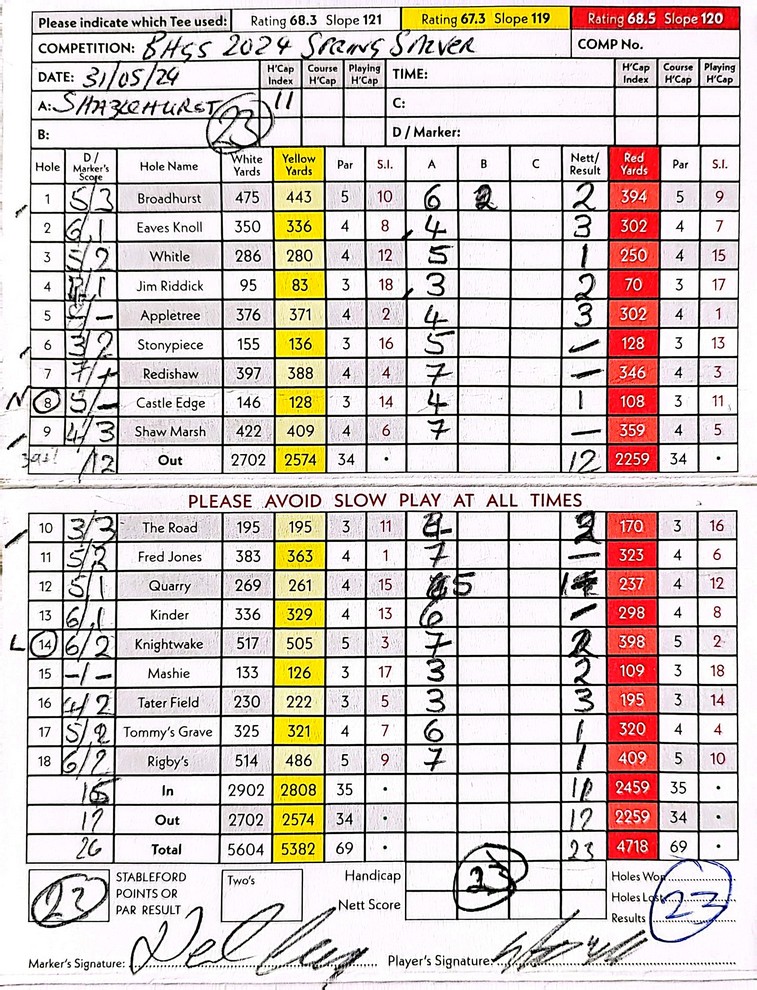 Please indicate which Tee used: Rating 68.3 Slope 121 Rating 67.3 Slope 119 Rating 68.5 Slope 120
COMPETITION: BHGS 2024 SPRING SILVER COMP No.
DATE: 31/05/24 H'Cap Index Course H'Cap Playing H'Cap TIME: H'Cap Index Course H'Cap Playing H'Cap
A: SHAZLEHURST 11 C:
B: 23 D / Marker:
Hole D / Marker's Score Hole Name White Yards Yellow Yards Par S.I. A B C Nett/ Result Red Yards Par S.I.
1 5/3 Broadhurst 475 443 5 10 6 2 2 394 5 9
2 6/1 Eaves Knoll 350 336 4 8 4 3 302 4 7
3 5/2 Whitle 286 280 4 12 5 1 250 4 15
4 /1 Jim Riddick 95 83 3 18 3 2 70 3 17
5 /- Appletree 376 371 4 2 4 3 302 4 1
6 3/2 Stonypiece 155 136 3 16 5 - 128 3 13
7 7/- Redishaw 397 388 4 4 7 - 346 4 3
N 8 5/- Castle Edge 146 128 3 14 4 1 108 3 11
9 4/3 Shaw Marsh 422 409 4 6 7 - 359 4 5
/12 Out 2702 2574 34 • 12 2259 34 •
PLEASE AVOID SLOW PLAY AT ALL TIMES
10 3/3 The Road 195 195 3 11 4 2 170 3 16
11 5/2 Fred Jones 383 363 4 1 7 - 323 4 6
12 5/1 Quarry 269 261 4 15 5 1 237 4 12
13 6/1 Kinder 336 329 4 13 6 - 298 4 8
L 14 6/2 Knightwake 517 505 5 3 7 2 398 5 2
15 -/- Mashie 133 126 3 17 3 2 109 3 18
16 4/2 Tater Field 230 222 3 5 3 3 195 3 14
17 5/2 Tommy's Grave 325 321 4 7 6 1 320 4 4
18 6/2 Rigby's 514 486 5 9 7 1 409 5 10
15 In 2902 2808 35 • 11 2459 35 •
12 Out 2702 2574 34 • 12 2259 34 •
26 Total 5604 5382 69 • 23 4718 69 •
23 STABLEFORD POINTS OR PAR RESULT Two's Handicap 23 Holes Won
Nett Score Holes Lost
Results 23
Marker's Signature: Player's Signature: